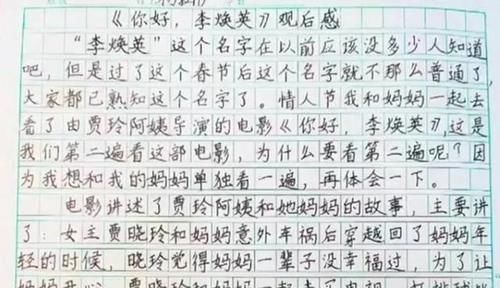 《你好，李焕英》观后感
“李焕英”这个名字在以前应该没多少人知道
吧，但是过了这个春节后这个名字就不那么普通了，
大家都已熟知这个名字了。情人节我和妈妈一起去
看了由贾玲阿姨导演的电影《你好，李焕英》，这是
我们第二遍看这部电影，为什么要看第二遍呢？因
为我想和我的妈妈单独看一遍，再体会一下。
电影讲述了贾玲阿姨和她妈妈的故事，主要讲
了：女主贾晓玲和妈妈意外车祸后穿越回了妈妈年
轻的时候，晓玲觉得妈妈一辈子没幸福过，为了让